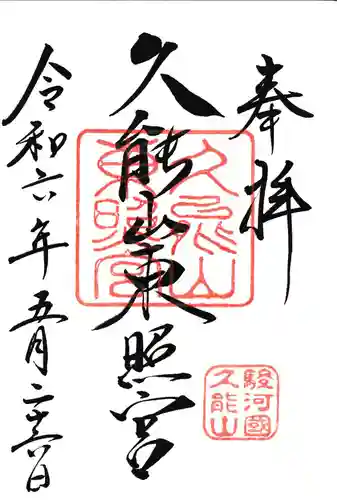 奉拝
久能山東照宮
令和六年五月二十六日
久能山東照宮
駿河國久能山